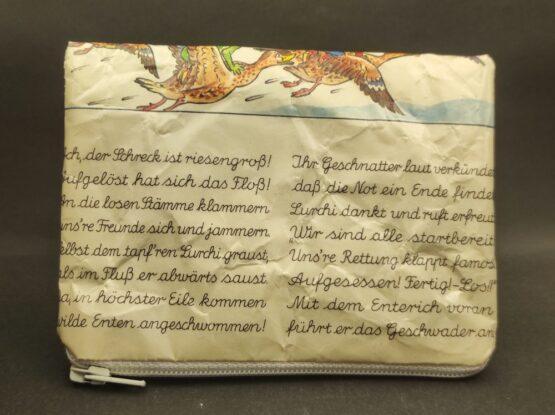 Ach, der Schreck ist riesengroß!
Aufgelöst hat sich das Floß!
An die losen Stämme klammern
uns're Freunde sich und jammern.
Selbst dem tapf'ren Lurchi graust,
als im Fluß er abwärts saust.
Da, in höchster Eile kommen
wilde Enten angeschwommen!
Ihr Geschnatter laut verkünde
daß die Not ein Ende finde
Lurchi dankt und ruft erfreut
„Wir sind alle startbereit
Uns're Rettung klappt famos
Aufgesessen! Fertig!-Los!"
Mit dem Enterich voran
führt er das Geschwader an